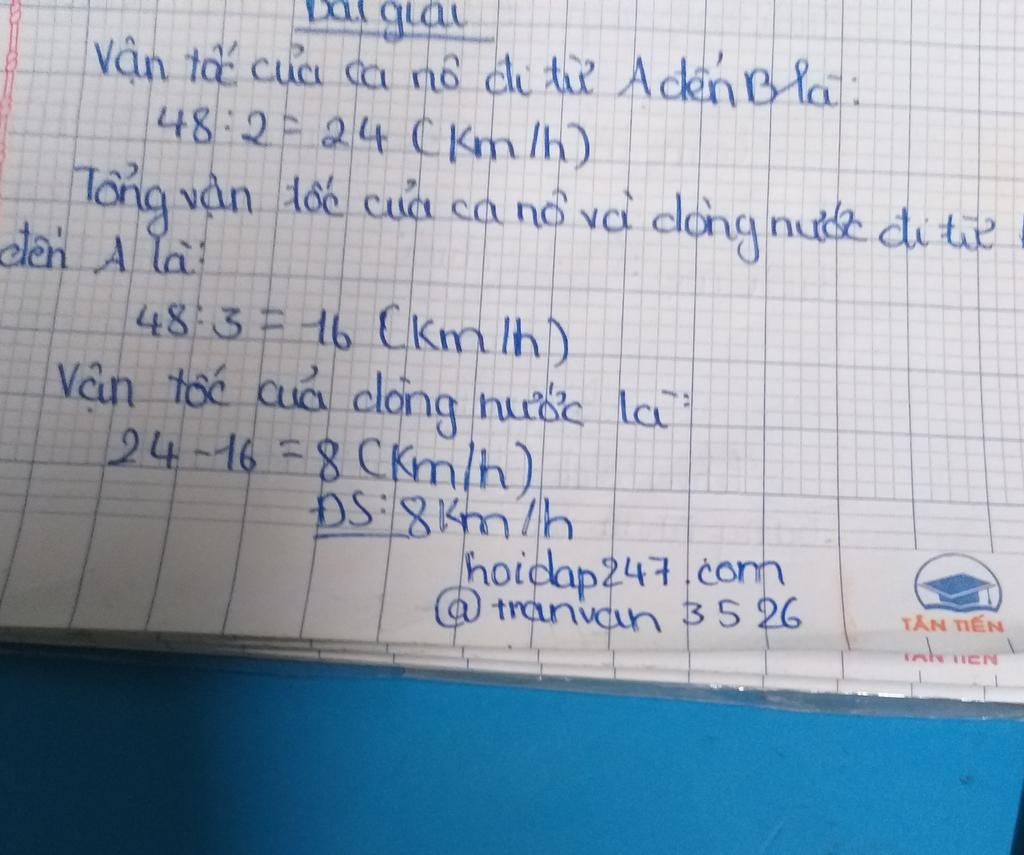 Bài giải
Vận tốc của ca nô đi từ A đến B là:
48 : 2 = 24 (Km/h)
Tổng vận tốc của ca nô và dòng nước đi từ
đến A là:
48 : 3 = 16 (Km/h)
Vận tốc của dòng nước là:
24 - 16 = 8 (Km/h)
ĐS: 8Km/h
hoidap247.com
@tranvan3526
TÂN TIẾN
TÂN TIẾN